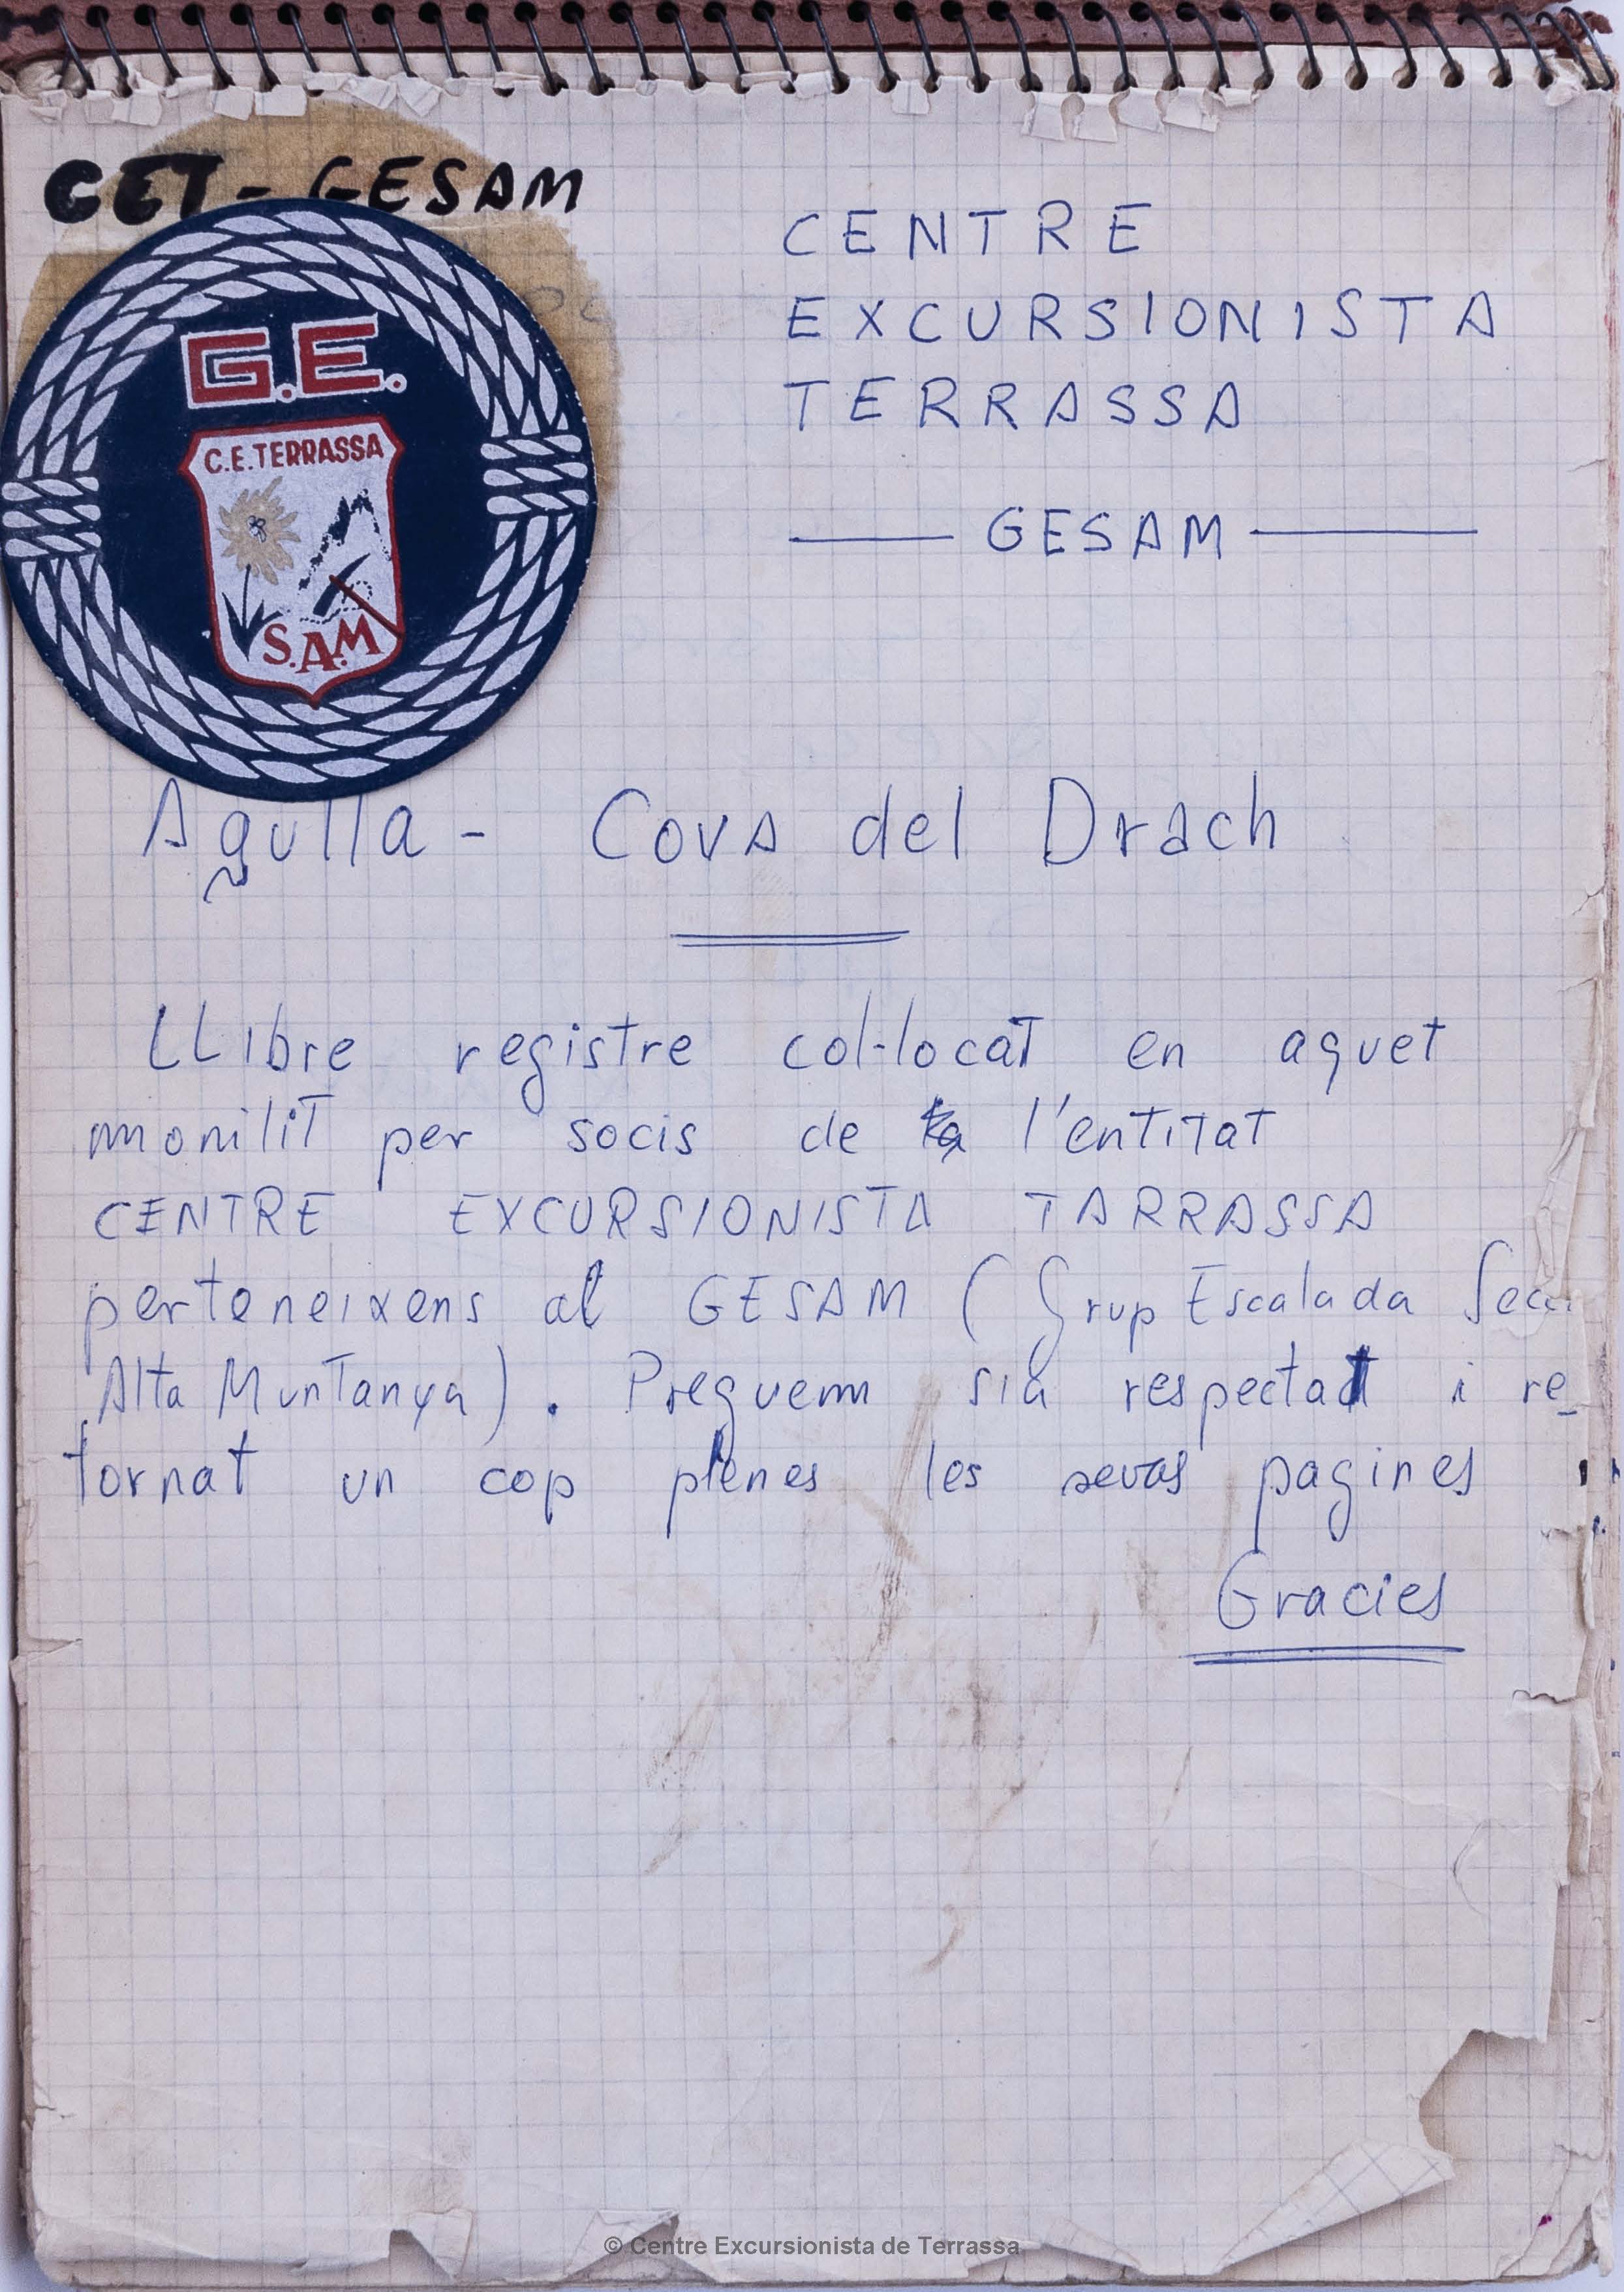 CET - GESAM
G.E.
C.E. TERRASSA
S.A.M
CENTRE
EXCURSIONISTA
TERRASSA
GESAM
Agulla - Cova del Drach
LLibre registre col·locat en aquet
monilit per socis de l'entitat
CENTRE EXCURSIONISTA TARRASSA
perteneixens al GESAM (Grup Escalada
Alta Muntanya). Preguem sia respectat i re_
tornat un cop plenes les sevas pagines
Gracies
© Centre Excursionista de Terrassa